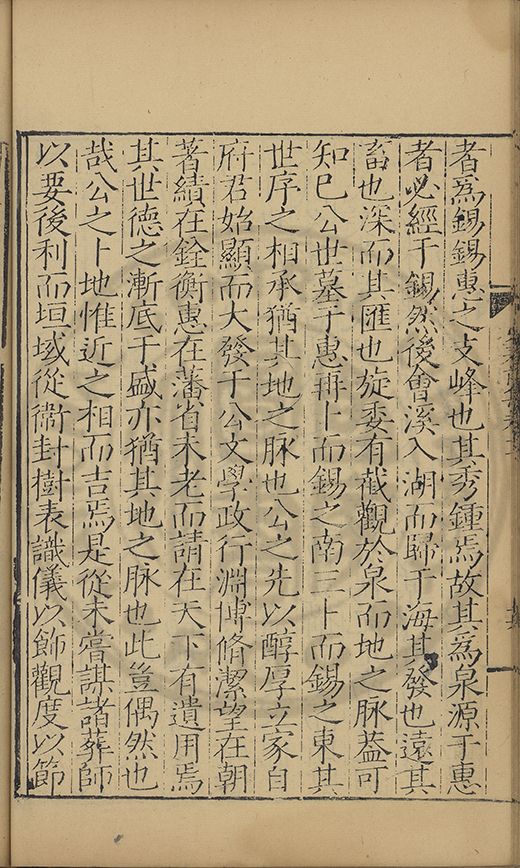 者爲錫錫惠之支峰也其秀鍾焉故其爲泉源于惠
者必經于錫然後會溪入湖而歸于海其發也遠其
畜也深而其匯也旋委有截觀於泉而地之脉葢可
知巳公世墓于惠再卜而錫之南三卜而錫之東其
世序之相承猶其地之脉也公之先以醇厚立家自
府君始顯而大發于公文學政行淵博脩潔望在朝
著績在銓衡惠在藩省未老而請在天下有遺用焉
其世德之漸底于盛亦猶其地之脉也此豈偶然也
哉公之卜地惟近之相而吉焉是從未嘗謀諸葬師
以要後利而垣域從衞封樹表識儀以飾觀度以節